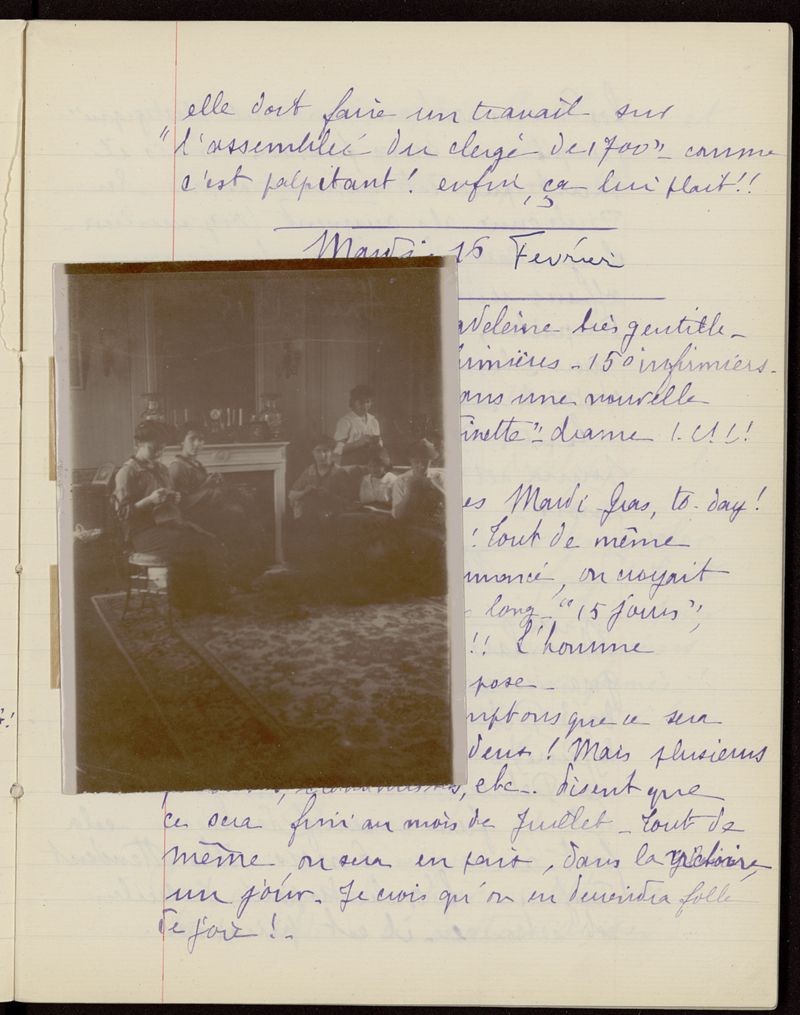 elle doit faire un travail sur
"l'assemblée du clergé de 1700" - comme
c'est palpitant! enfin, ça lui plait!!
Mardi 16 Février
adeleine très gentille -
150 infirmiers -
ans une nouvelle
inette" - drame !.!.!.!
es Mardi Gras, to-day!
! Tout de même
mmencé, on croyait
long - "15 jours",
!! L'homme
pose -
mptons que ce sera
dent! Mais plusieurs
, etc.. disent que
ce sera fini au mois de Juillet - Tout de
même on sera en paix, dans la victoire,
un jour. Je crois qu'on en deviendra folle
de joie! -